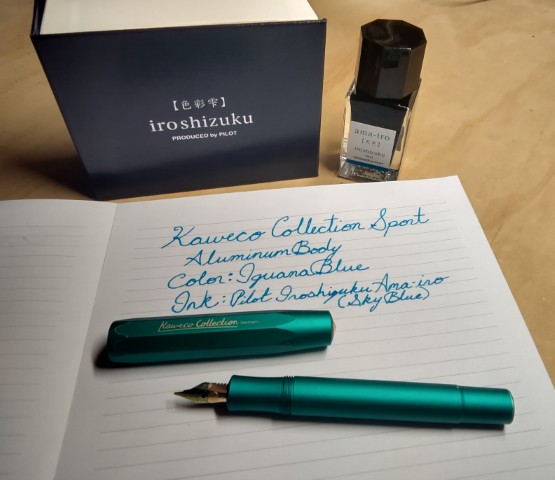 【色彩雫】
iroshizuku
PRODUCED by PILOT
ama-iro
iroshizuku
Kaweco Collection Sport
Aluminum Body
Color: Iguana Blue
Ink: Pilot Iroshizuku Ama-iro
(Sky Blue)
Kaweco Collection